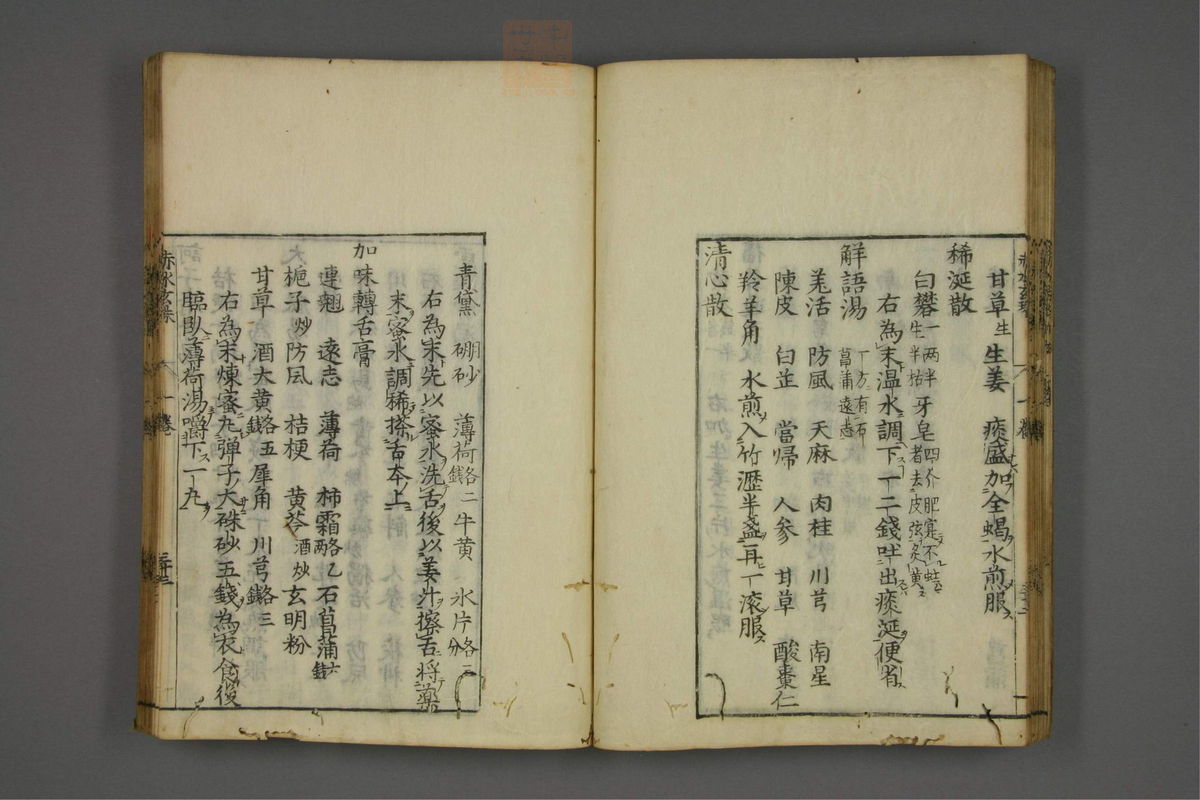 甘草生 生姜 痰盛加全蝎水煎服
稀涎散
白礬一两半生半枯牙皂四介肥寔不蛀者去皮弦炙黄
右為末温水調下一二錢吐出痰涎便省
解語湯 一方有石菖蒲遠志
羌活 防風 天麻 肉桂 川芎 南星
陳皮 白芷 當歸 人参 甘草 酸棗仁
羚羊角 水煎入竹瀝半盞再一滚服
清心散
青黛 硼砂 薄荷各二錢牛黄 氷片各三分
右為末先以蜜水洗舌後以姜汁擦舌将藥
末蜜水調稀搽舌本上
加味轉舌膏
連翹 遠志 薄荷 柿霜各乙两石菖蒲六錢
梔子炒防風 桔梗 黄芩酒炒玄明粉
甘草 酒大黄各五錢犀角 川芎各三錢
右為末煉蜜丸弹子大硃砂五錢為衣食後
臨臥薄荷湯嚼下一丸
赤水玄珠 一卷